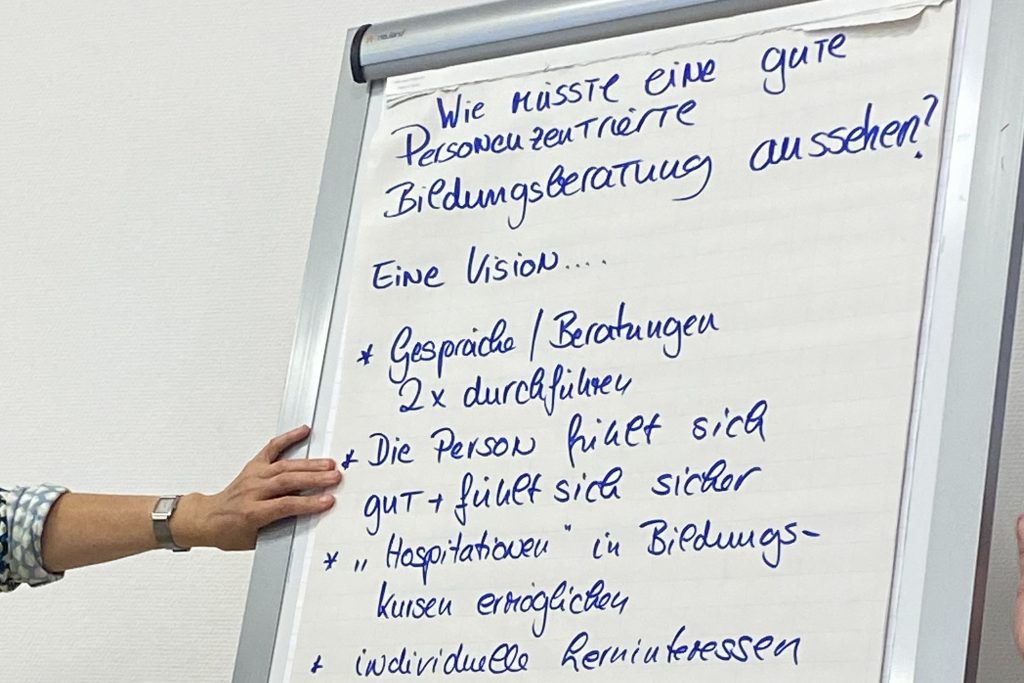 neuland
Wie müsste eine gute
Personenzentrierte
Bildungsberatung aussehen?
Eine Vision....
* Gespräche / Beratungen
2x durchführen
* Die Person fühlt sich
gut + fühlt sich sicher
* „Hospitationen" in Bildungs-
kursen ermöglichen
* individuelle Lerninteressen